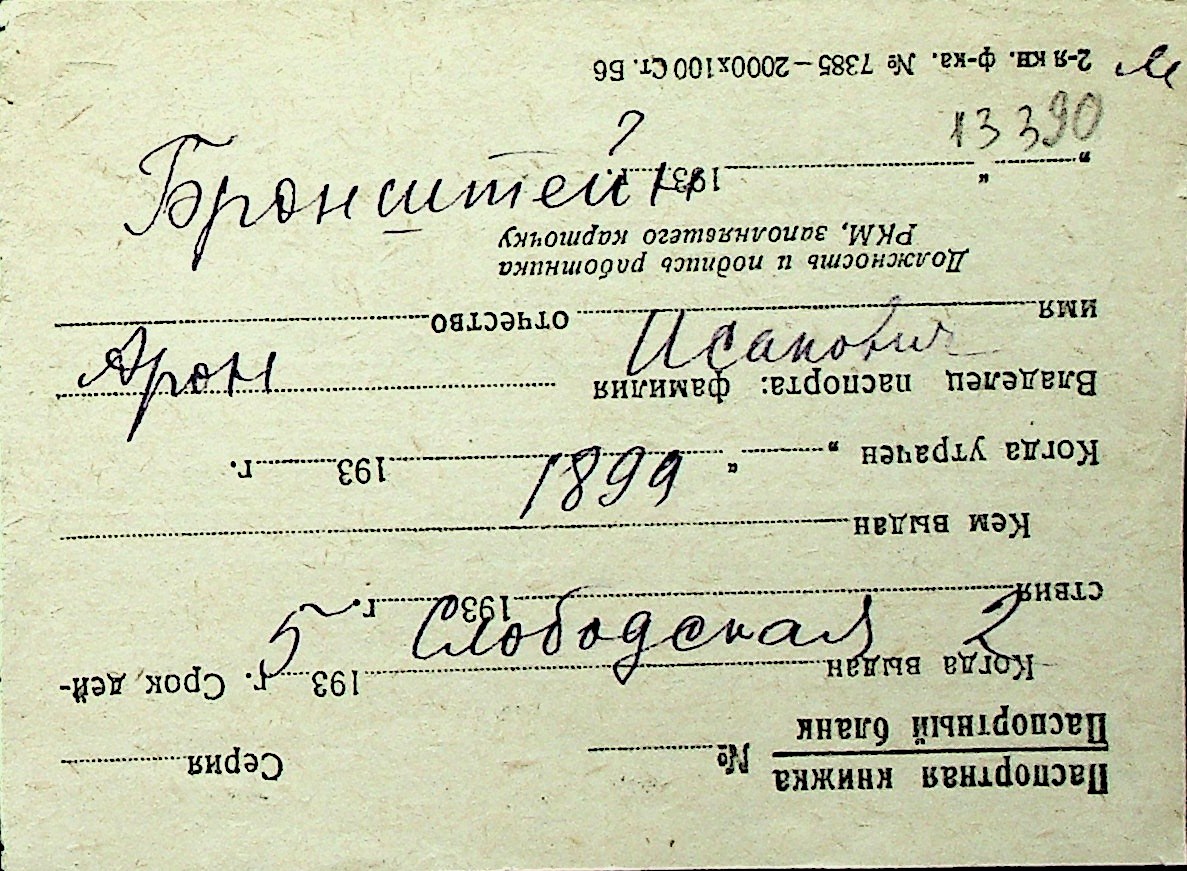 13390
Бронштейн
Арон Исакович
1899
5 Слободская 2
Паспортная книжка
Паспортный бланк № Серия
Когда выдан 193 г. Срок дей-
ствия 193 г.
Кем выдан
Когда утрачен „ “ 193 г.
Владелец паспорта: фамилия
имя отчество
Должность и подпись работника
РКМ, заполнявшего карточку
„ “ 193 г.
2-я кн. ф-ка. № 7385—2000х100 Ст. Б6